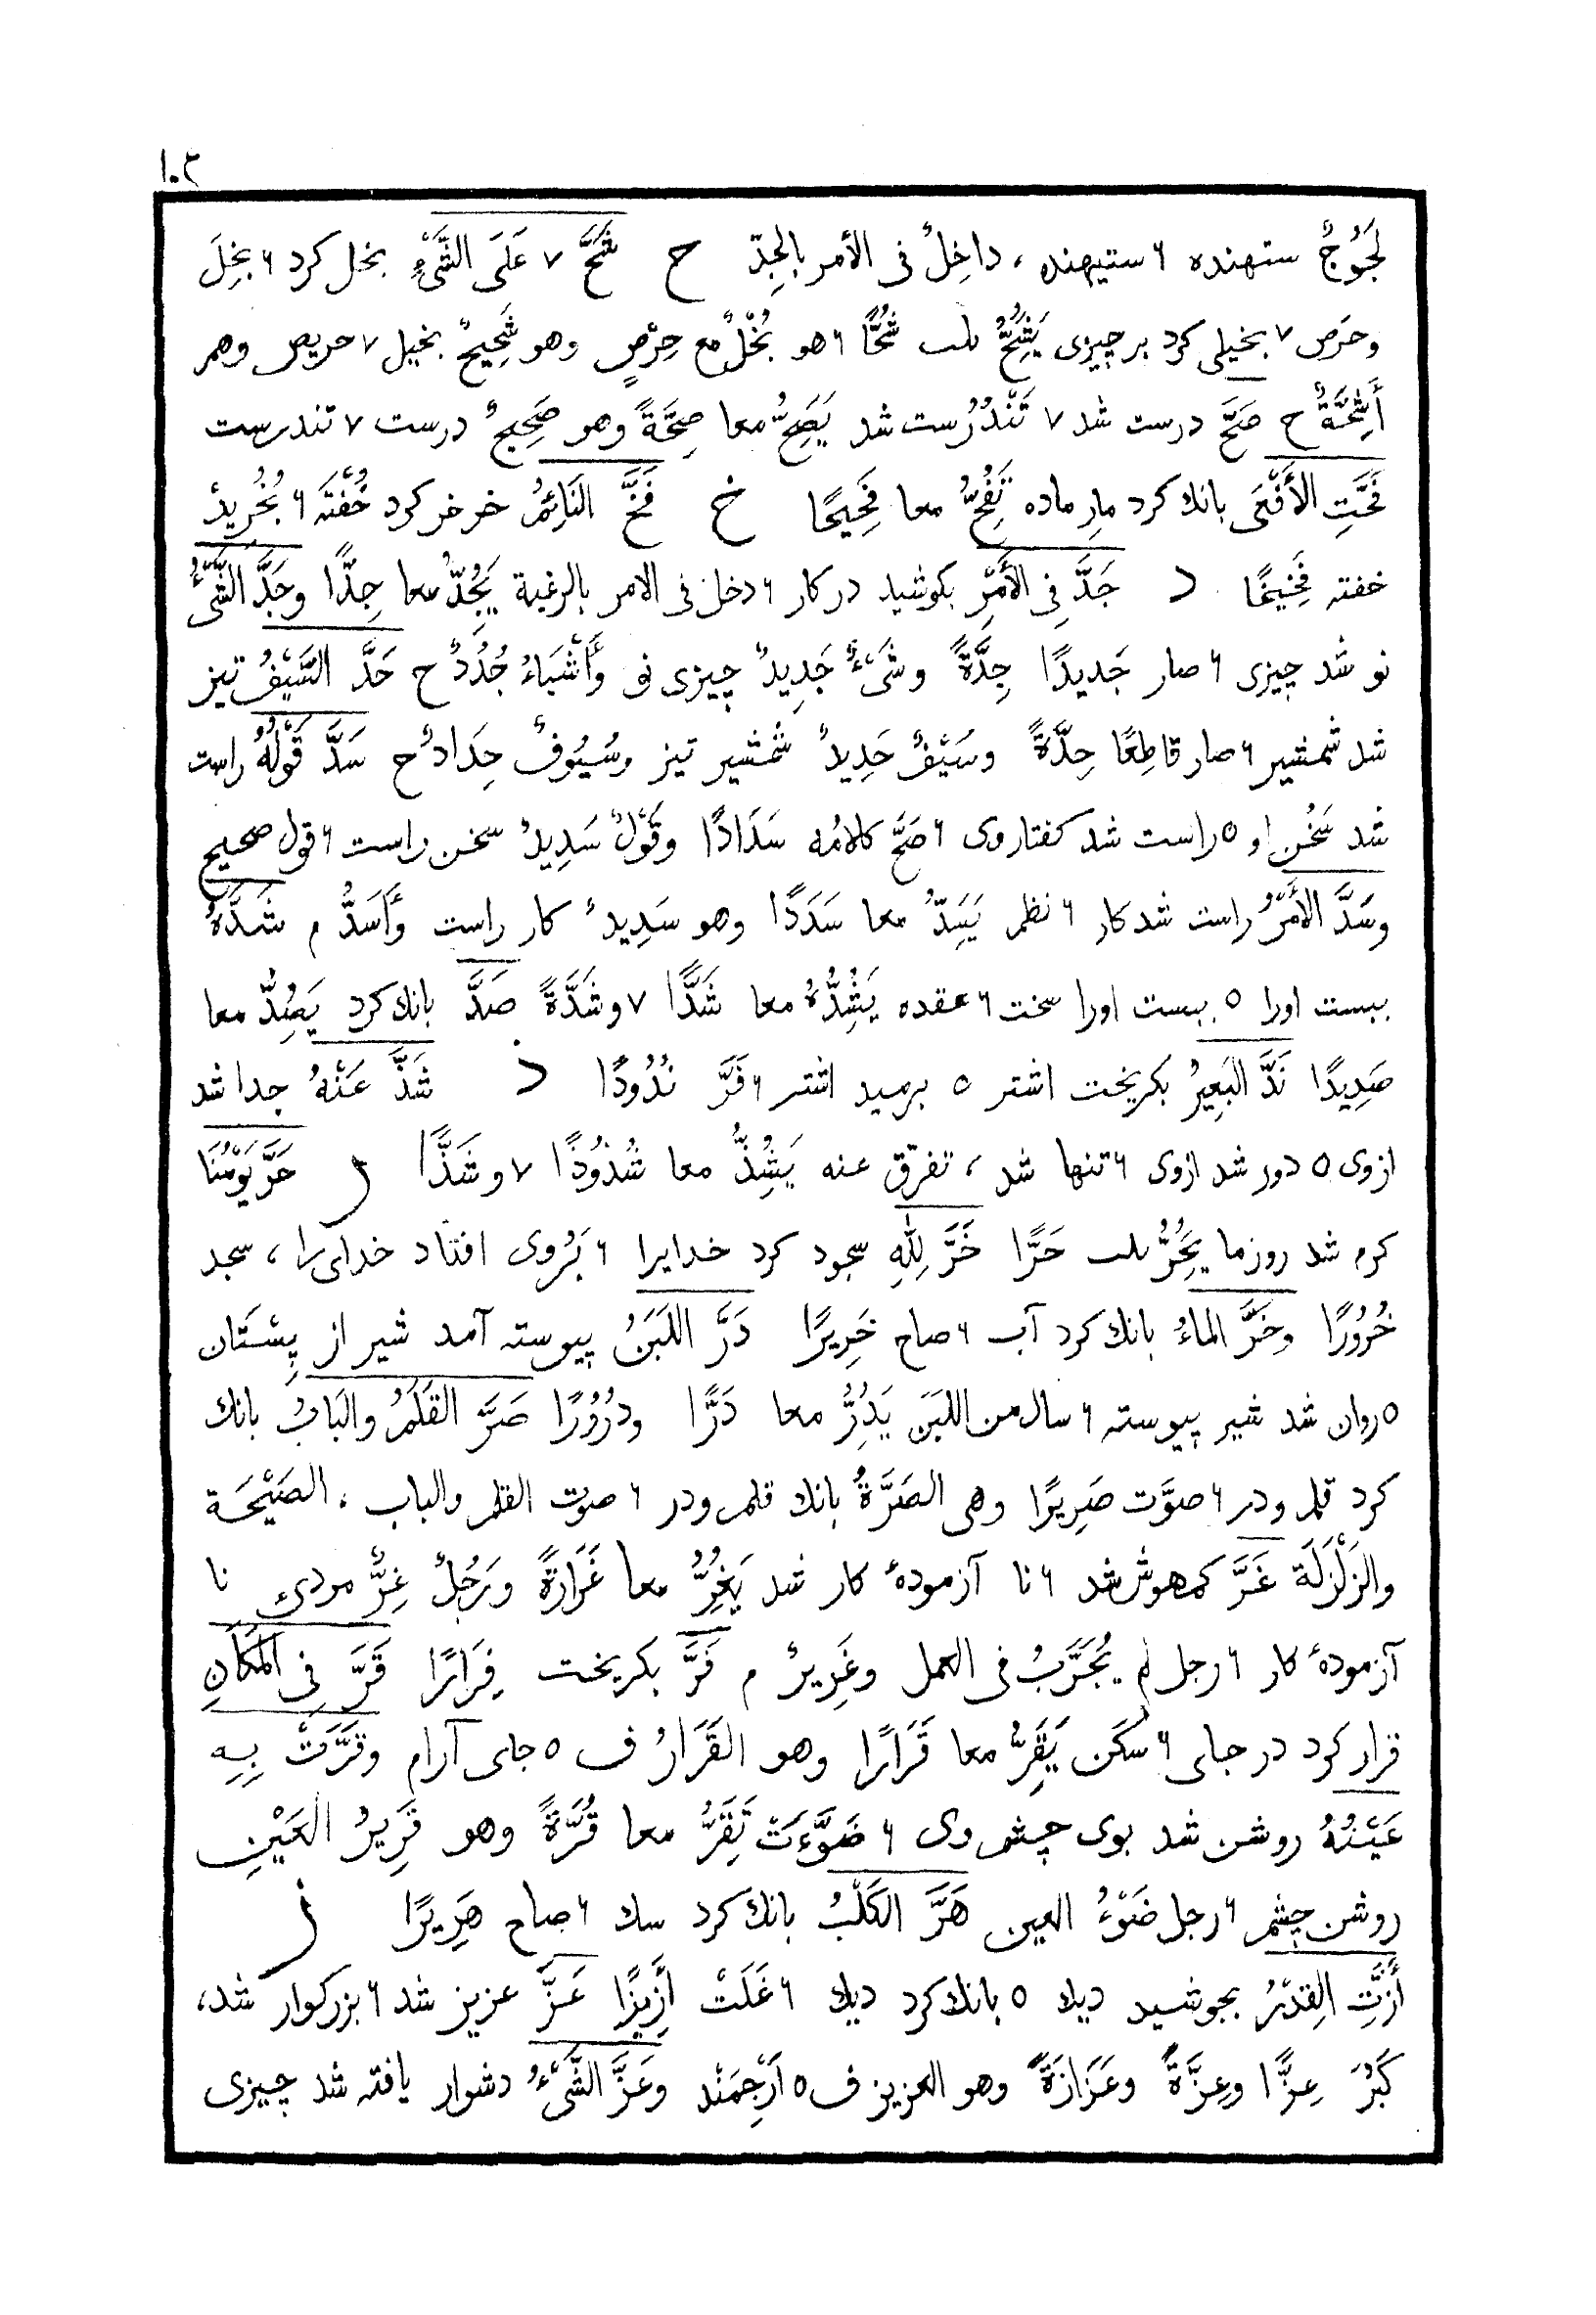 ١٠٣
لَجُوجٌ ستهنده ۶ ستیهنده ، داخِلٌ فی الأمر بالجِدّ ح شَحَّ ٧ عَلَی الشَّیْءِ بخل کرد ۶ بخِلَ
وحَرَص ٧ بخیلی کرد بر چیزی یَشُِحُّ ثلث شُحًّا ۶ هو بُخْلٌ مع حِرْصٍ وهو شَحِیحٌ بخیل ٧ حریص وهم
أَشِحَّةٌ ح صَحَّ درست شد ٧ تَنْدُرُست شد یَصَِحُّ معا صِحَّةً وهو صَحِیحٌ درست ٧ تندرست
فَحَّتِ الأَفْعَی بانك کرد مارِ ماده تَفُِحُّ معا فَحِیحًا خ فَخَّ النَائِمُ خرخر کرد خُفْتَه ۶ بُخُرِیدْ
خفته فَخِیخًا د جَدَّ فِی الأَمْرِ بکوشید در کار ۶ دخل فی الامر بالرغبة یَجُِدُّ معا جِدًّا وجَدَّ الشَّیْءُ
نو شد چیزی ۶ صار جَدیدًا جِدَّةً وشَیْءٌ جَدِیدٌ چیزی نو وَأَشْیَاءُ جُدُدٌ ح حَدَّ السَّیْفُ تیز
شد شمشیر ۶ صار قاطِعًا حِدَّةً وسَیْفٌ حَدِیدٌ شمشیر تیز وسُیُوفٌ حِدَادٌ ح سَدَّ قَوْلُهُ راست
شد سَخُن او ٥ راست شد کفتار وی ۶ صَحَّ کلامُه سَدَادًا وقَوْلٌ سَدِیدٌ سخن راست ۶ قول صحیح
وسَدَّ الأَمْرُ راست شد کار ۶ نظم یَسِدُّ معا سَدَدًا وهو سَدِیدٌ کار راست وَأَسَدُّ م شَدَّهُ
ببست اورا ٥ ببست اورا سخت ۶ عقده یَشُِدُّهُ معا شَدًّا ٧ وشَدَّةً صَدَّ بانك کرد یَصُِدُّ معا
صَدِیدًا نَدَّ البَعِیرُ بکریخت اشتر ٥ برمید اشتر ۶ فَرَّ نُدُودًا ذ شَذَّ عَنْهُ جدا شد
ازوی ٥ دور شد ازوی ۶ تنها شد ، تفرّق عنه یَشُِذُّ معا شُذوُذًا ٧ و شَذًّا ر حَرَّ یَوْمُنَا
کرم شد روز ما یَحَُِرُّ ثلث حَرًّا خَرَّ لِلّٰهِ سجود کرد خدایرا ۶ بَرُوی افتاد خدای را ، سجد
خُرُورًا وخَرَّ الماءُ بانك کرد آب ۶ صاح خَرِیرًا دَرَّ اللَبَنُ پیوسته آمد شیر از پِسْتَان
٥ روان شد شیر پیوسته ۶ سال من اللبَنِ یَدُِرُّ معا دَرًّا ودُرُورًا صَرَّ القَلَمُ والبَابُ بانك
کرد قلم ودر ۶ صوَّت صَرِیرًا وهی الصَرَّةُ بانك قلم ودر ۶ صوت القلم والباب ، الصَیْحَة
والزَلْزَلَة غَرَّ کم هوش شد ۶ نا آزمودهٔ کار شد یَغُِرُّ معا غَرَارَةً ورَجُلٌ غِرٌّ مردیء نا
آزمودهٔ کار ۶ رجل لم یُجَرَّبْ فی العمل وغَرِیرٌ م فَرَّ بکریخت فِرَارًا قَرَّ فِی المَکَانِ
قرار کرد در جای ۶ سکَن یَقَِرُّ معا قَرَارًا وهو القَرَارُ ف ٥ جای آرام وقرَّتْ بِهِ
عَیْنُهُ روشن شد بوی چشم وی ۶ ضَوَّءَتْ تَقَِرُّ معا قُرَّةً وهو قَرِیرُ العَیْنِ
روشن چشم ۶ رجل ضَوْءُ العین هَرَّ الکَلْبُ بانك کرد سك ۶ صاح هَرِیرًا ز
أَزَّتِ القِدْرُ بجوشید دیك ٥ بانك کرد دیك ۶ غَلَتْ أَزِیزًا عَزَّ عزیز شد ۶ بزرکوار شد ،
کَبُرَ عِزًّا وعِزَّةً وعَزَازَةً وهو العزیز ف ٥ أَرْجِمَنْد وعَزَّ الشَّیْءُ دشوار یافته شد چیزی